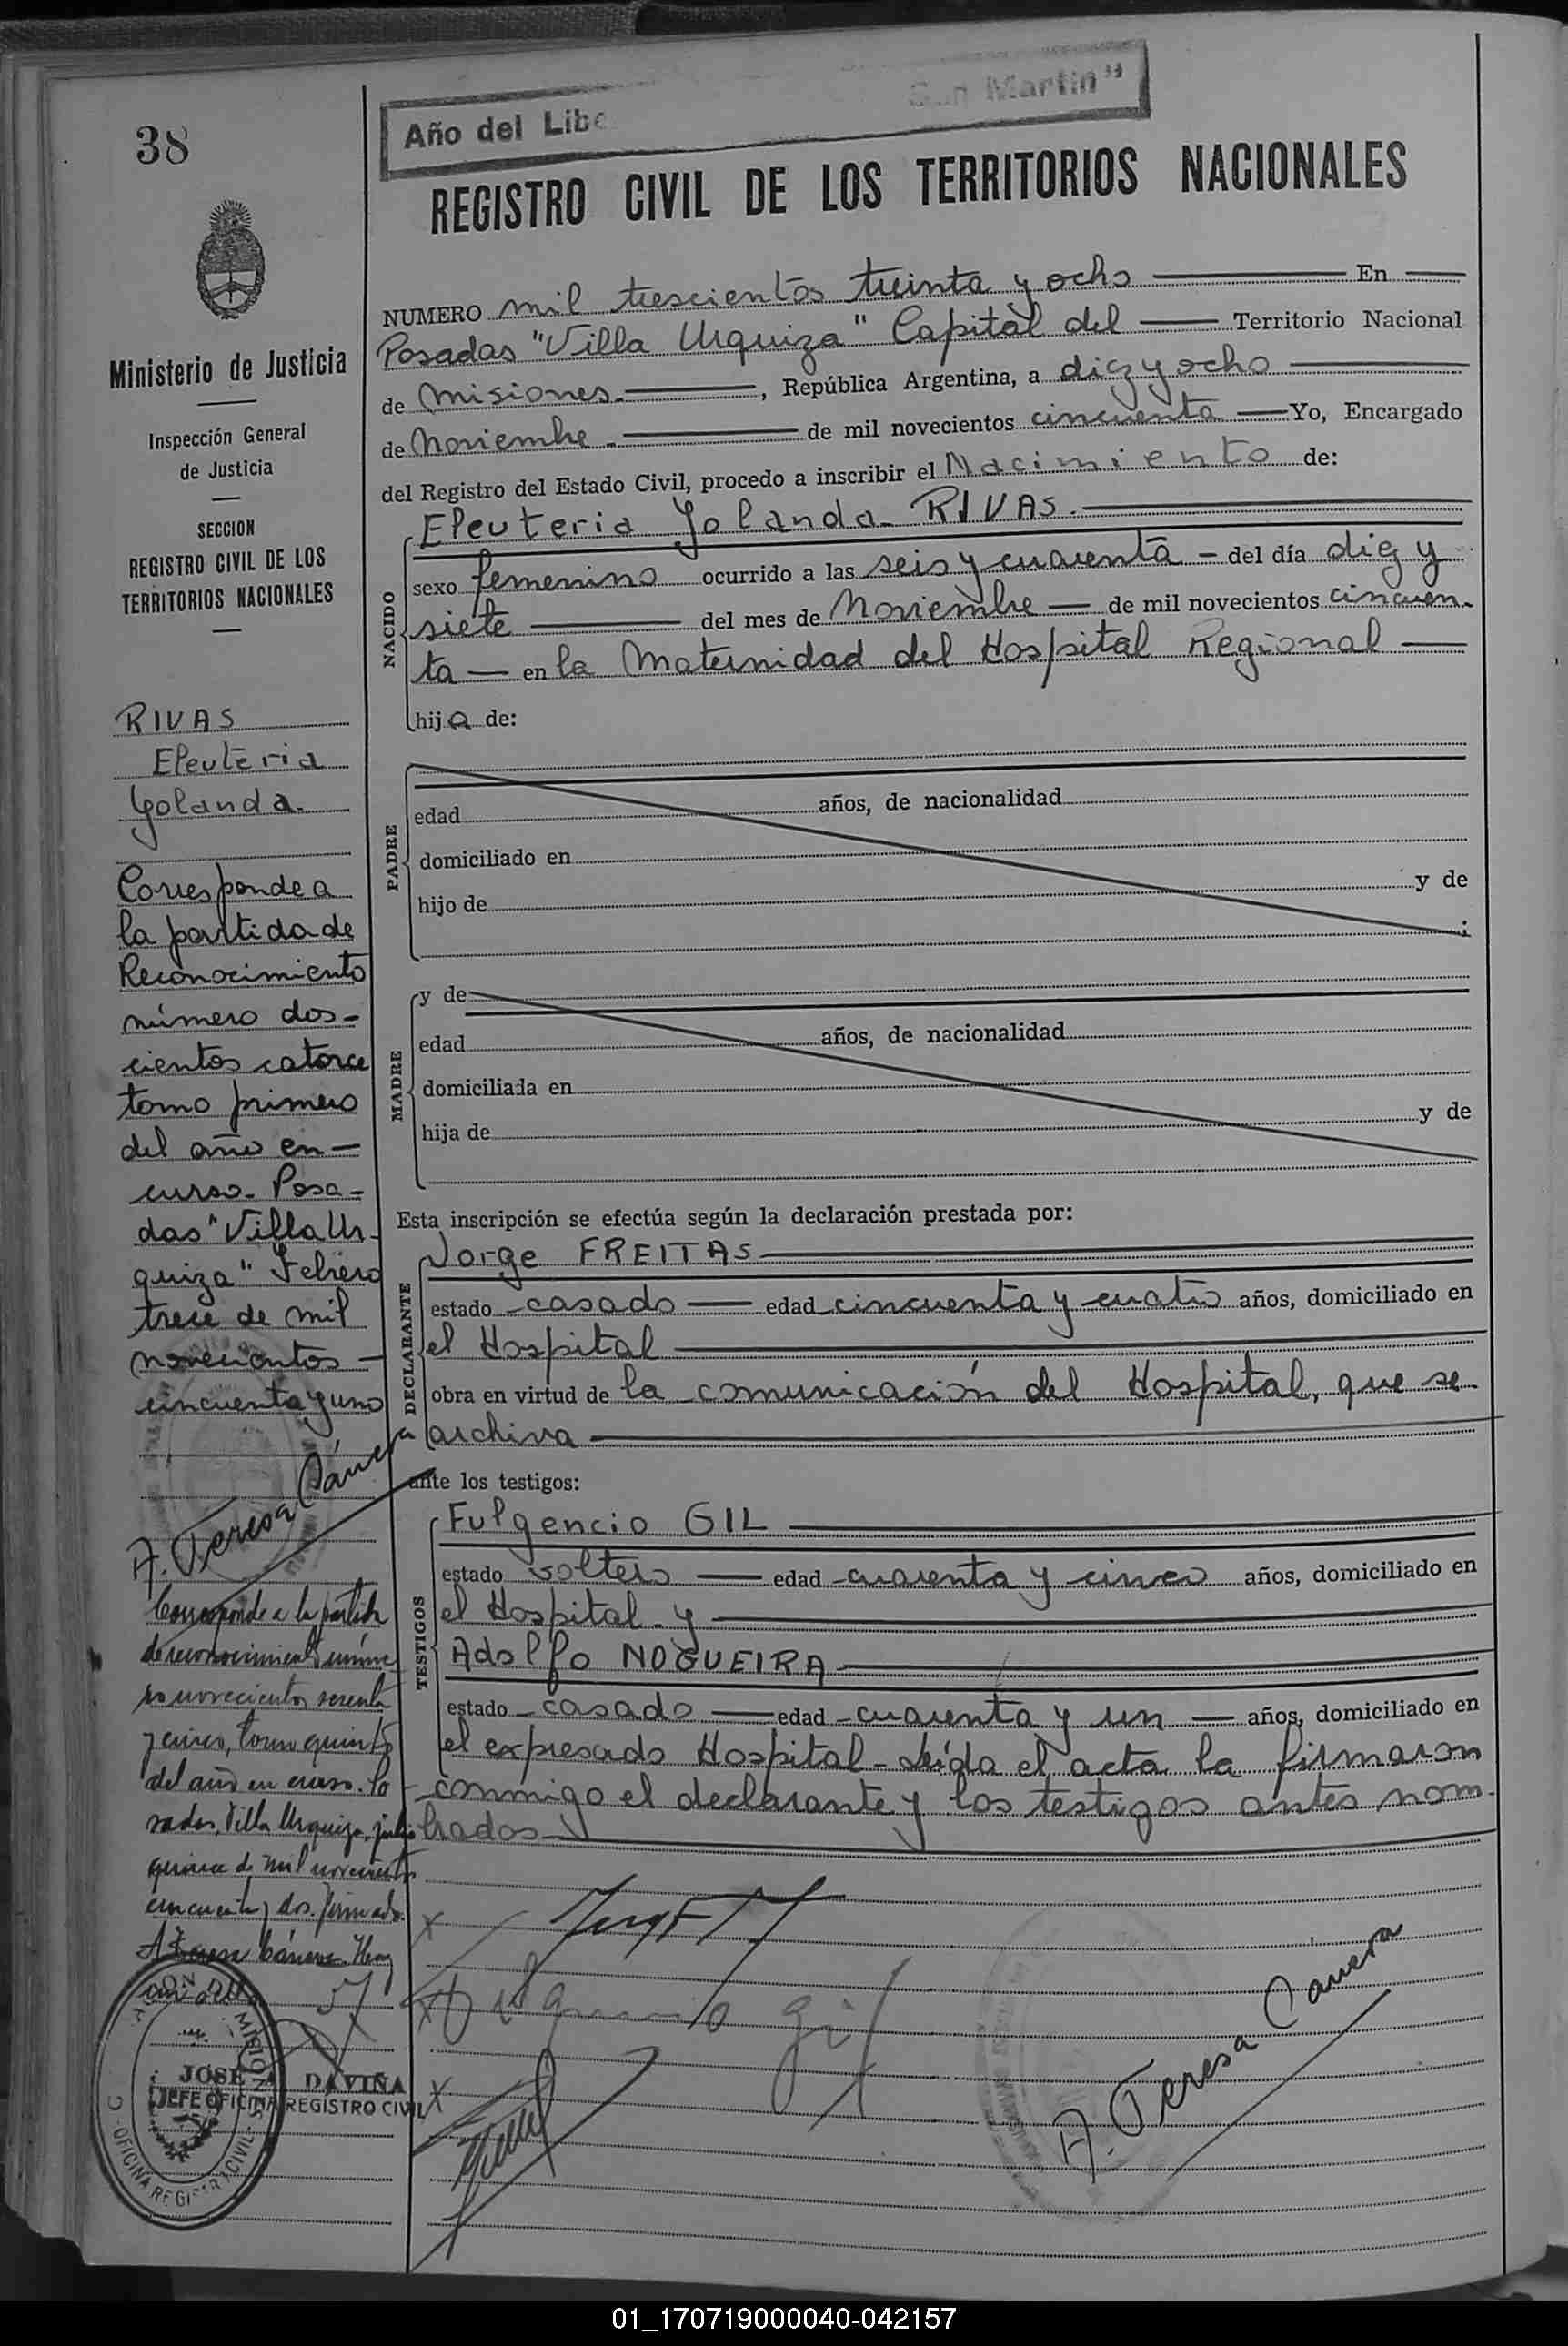 38
Año del Libe
San Martin"
REGISTRO CIVIL DE LOS TERRITORIOS NACIONALES
Ministerio de Justicia
Inspección General
de Justicia
SECCION
REGISTRO CIVIL DE LOS
TERRITORIOS NACIONALES
RIVAS
Eleuteria
Yolanda.
Corresponde a
la partida de
Reconocimiento
número dos-
cientos catorce
tomo primero
del año en-
curso. Posa-
das "Villa Ur-
quiza" Febrero
trece de mil
novecientos
cincuenta y uno
A. Teresa Cánera
Corresponde a la partida
de reconocimiento núme
ro novecientos sesenta
y cinco, tomo quinto
del año en curso. Po
sadas, Villa Urquiza, julio
quince de mil novecientos
cincuenta y dos. Firmado.
A. Teresa Cánera. Hay
un sello
JOSE A. DAVIÑA
JEFE OFICINA REGISTRO CIVIL
OFICINA REGISTRO CIVIL
MISIONES
NUMERO mil trescientos treinta y ocho En
Posadas "Villa Urquiza" Capital del Territorio Nacional
de Misiones. , República Argentina, a diez y ocho
de Noviembre. de mil novecientos cincuenta Yo, Encargado
del Registro del Estado Civil, procedo a inscribir el Nacimiento de:
NACIDO
Eleuteria Yolanda RIVAS.
sexo femenino ocurrido a las seis y cuarenta del día diez y
siete del mes de Noviembre de mil novecientos cincuen-
ta en la Maternidad del Hospital Regional
hija de:
PADRE
edad años, de nacionalidad
domiciliado en
hijo de y de
;
MADRE
y de
edad años, de nacionalidad
domiciliada en
hija de y de
Esta inscripción se efectúa según la declaración prestada por:
DECLARANTE
Jorge FREITAS
estado casado edad cincuenta y cuatro años, domiciliado en
el Hospital
obra en virtud de la comunicación del Hospital, que se
archiva
ante los testigos:
TESTIGOS
Fulgencio GIL
estado soltero edad cuarenta y cinco años, domiciliado en
el Hospital y
Adolfo NOGUEIRA
estado casado edad cuarenta y un años, domiciliado en
el expresado Hospital - Leída el acta la firmaron
conmigo el declarante y los testigos antes nom-
brados
x
x Fulgencio Gil
x
A. Teresa Canera
01_170719000040-042157